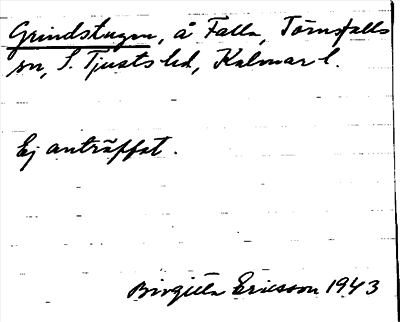 Grindstugan, å Falla, Törnsfalls
sn, S. Tjusts hd, Kalmar l.
Ej anträffat.
Birgitta Ericsson 1943